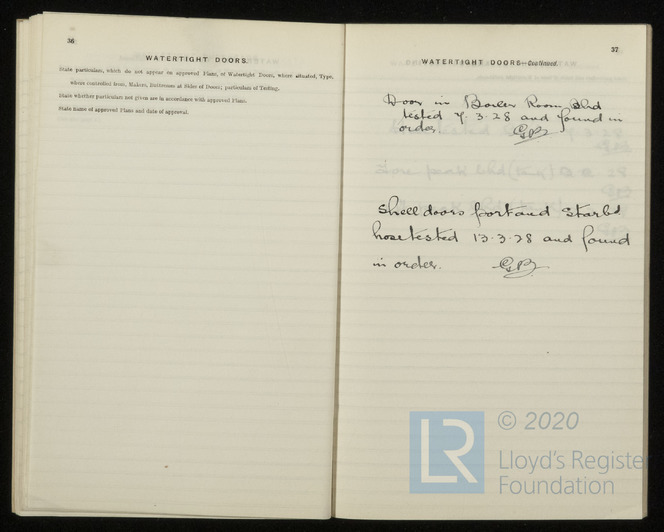 36
WATERTIGHT DOORS.
State particulars, which do not appear on approved Plans, of Watertight Doors, where situated, Type,
where controlled from, Makers, Stiffeners at Sides of Doors; particulars of Testing.
State whether particulars not given are in accordance with approved Plans.
State name of approved Plans and date of approval.
37
WATERTIGHT DOORS—Continued.
Door in Boiler Room Bhd
tested 7.3.28 and found in
order. GB
Shell doors port and Starbd
hose tested 13.3.28 and found
in order. GB
© 2020
LR
Lloyd's Register
Foundation